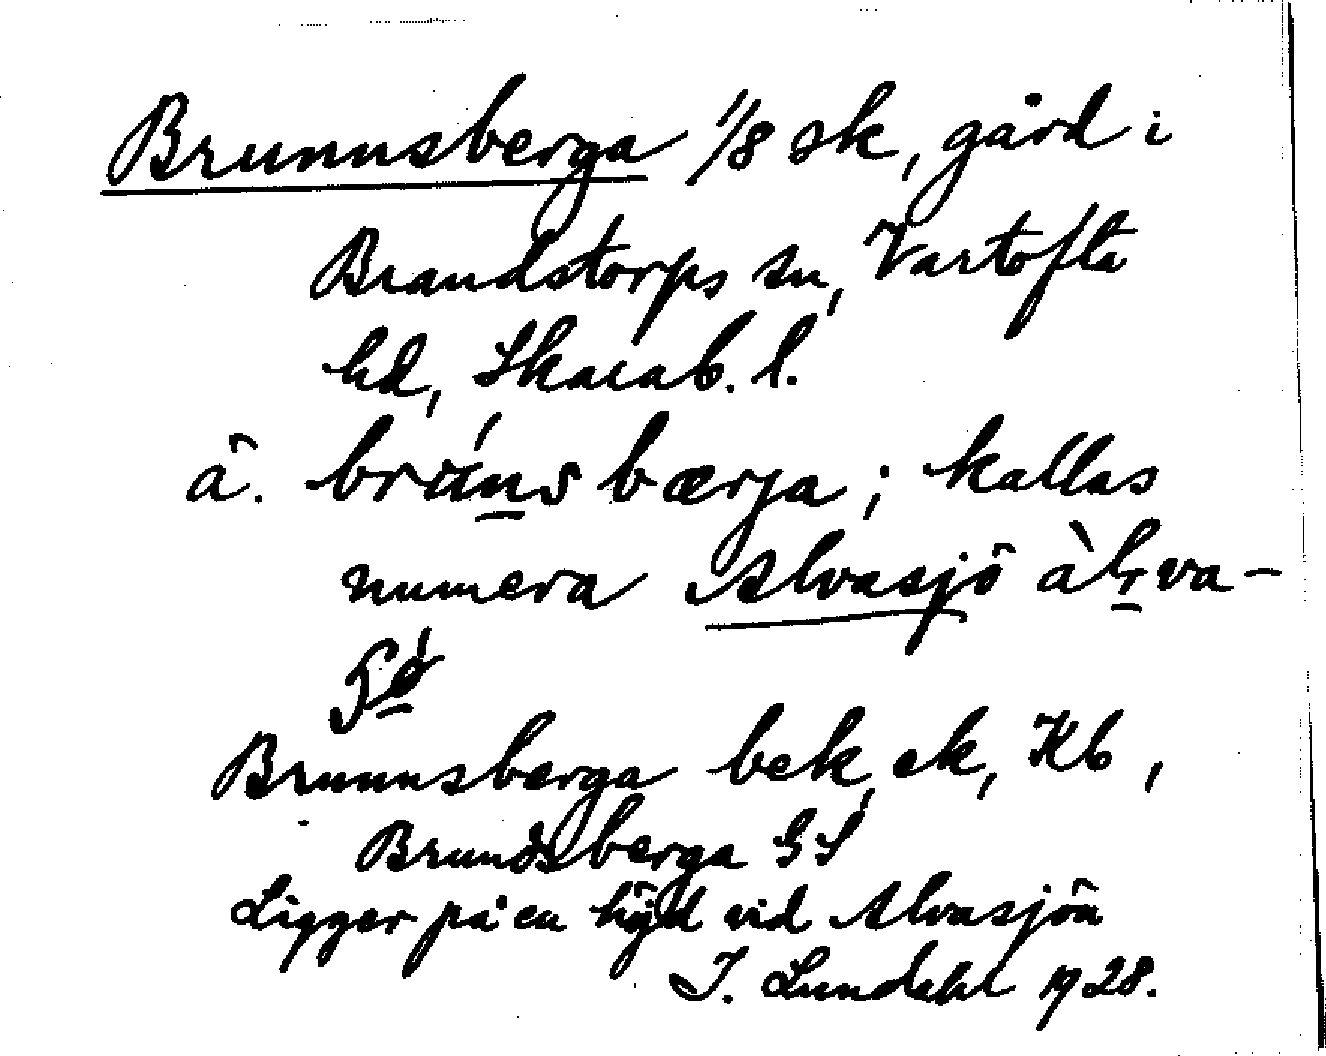 Brunnsberga 1/8 sk, gård i
Brandstorps sn, Vartofta
hd, Skarab. l.
â. brúns bærja ; kallas
numera Alvasjö àlva-
Brunnsberga bek, ek, Kb,
Brundsberga GS
Ligger på en höjd vid Alvasjön
I. Lundahl 1928.